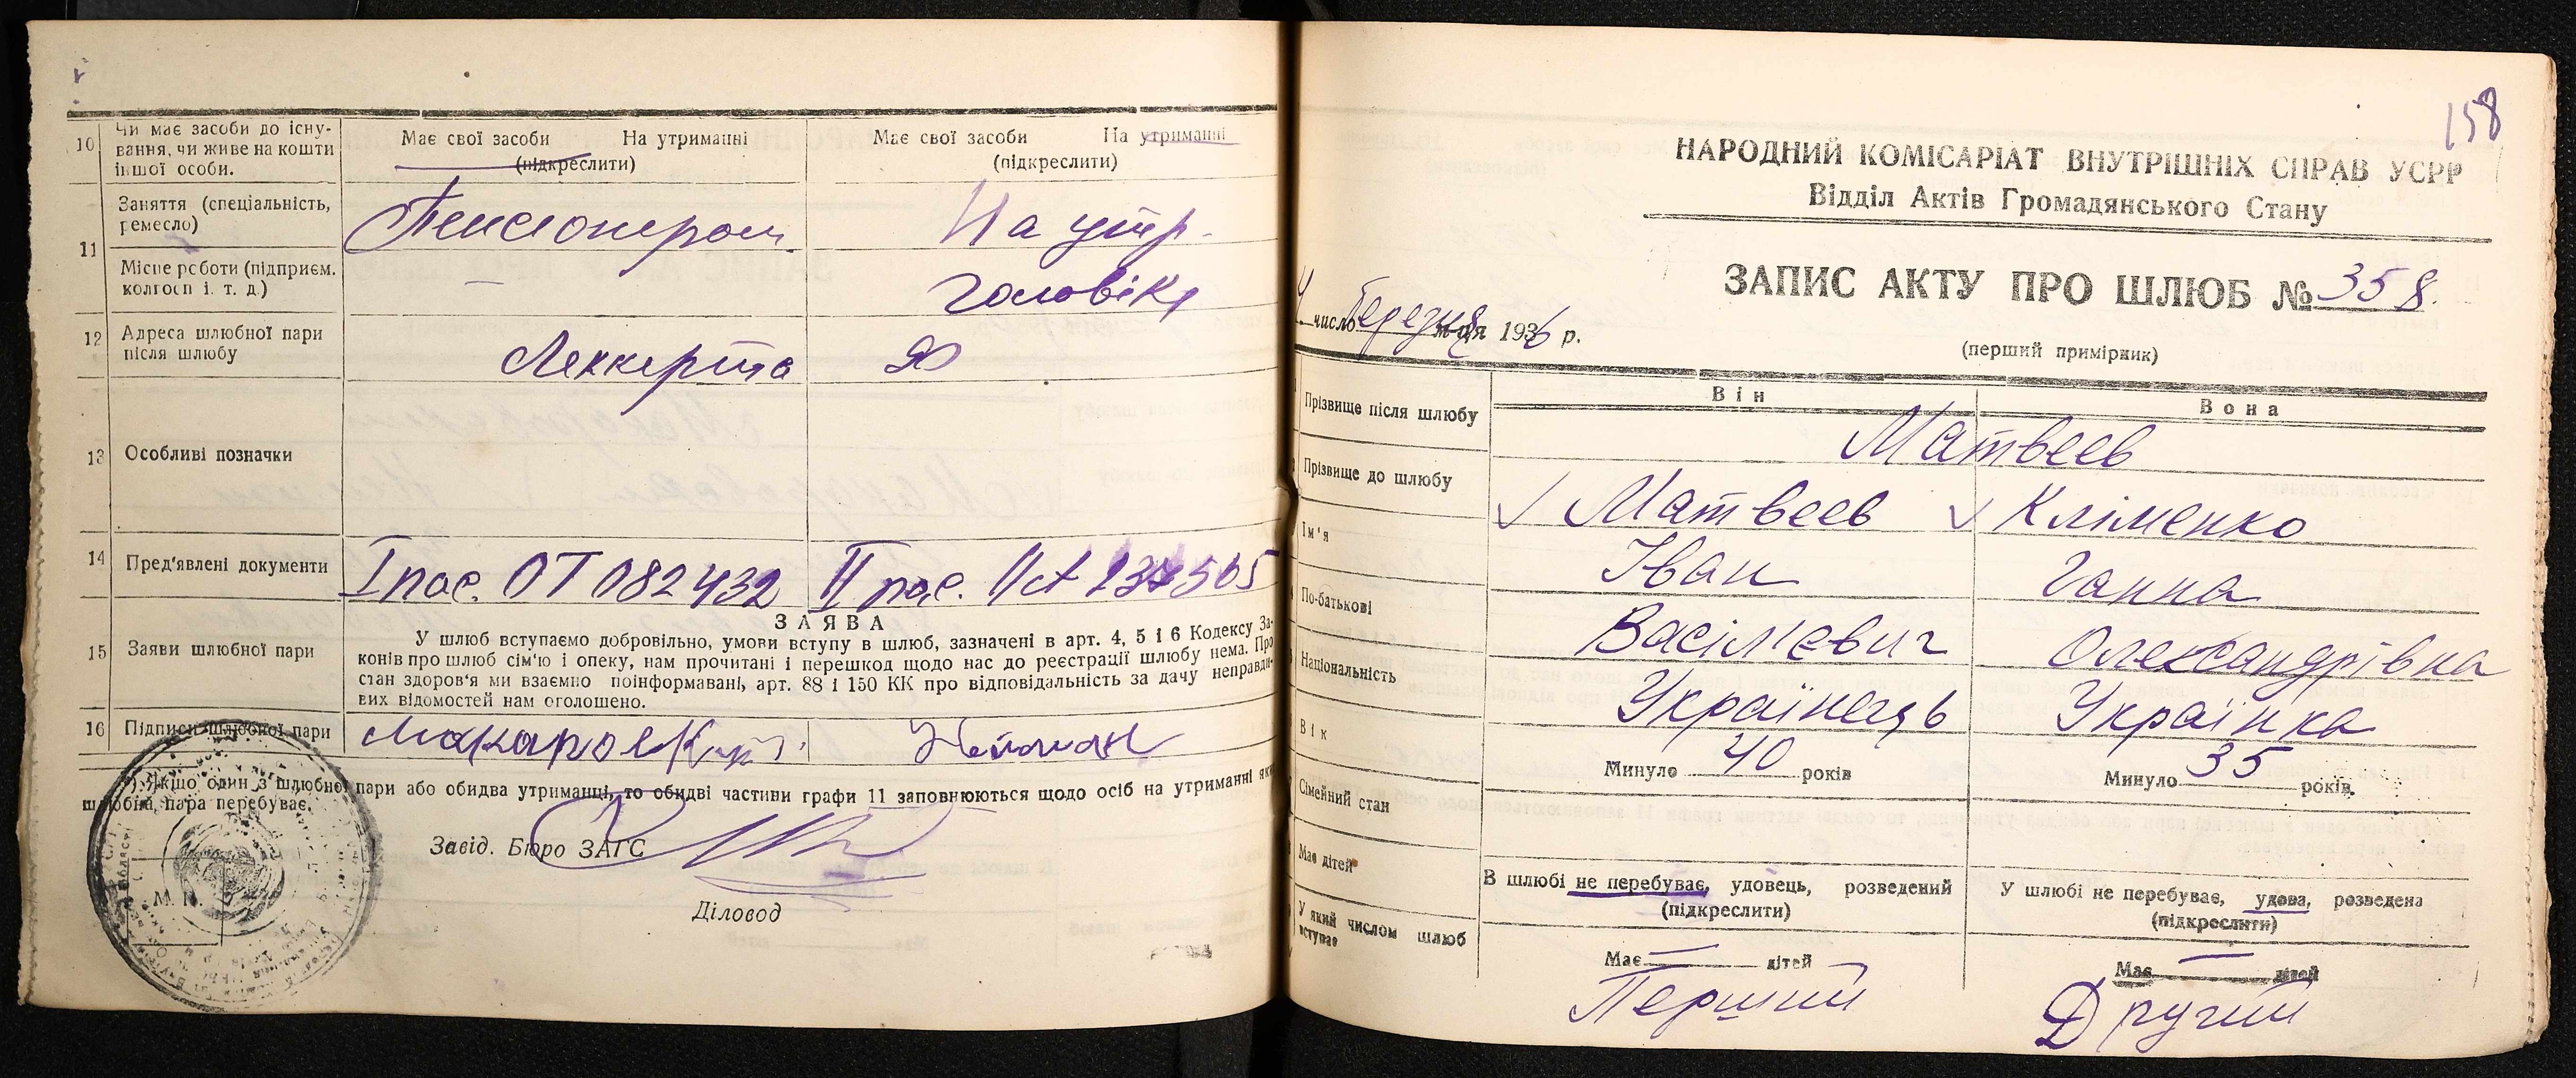 10 Чи має засоби до існу-
вання, чи живе на кошти
іншої особи.
Має свої засоби На утриманні
(підкреслити)
Має свої засоби На утриманні
(підкреслити)
11 Заняття (спеціальність,
ремесло)
Пенсіонером
На утр.
Місце роботи (підприєм.
колгосп і. т. д.)
—
чоловіка
12 Адреса шлюбної пари
після шлюбу
Леккерта 20
13 Особливі позначки
14 Пред'явлені документи
I пас. ОТ 082432
II пас.
15 Заяви шлюбної пари
ЗАЯВА
У шлюб вступаємо добровільно, умови вступу в шлюб, зазначені в арт. 4, 5 і 6 Кодексу За-
конів про шлюб сім'ю і опеку, нам прочитані і перешкод щодо нас до реєстрації шлюбу нема. Про
стан здоров'я ми взаємно поінформавані, арт. 88 і 150 КК про відповідальність за дачу неправди-
вих відомостей нам оголошено.
16 Підписи шлюбної пари
*) Якщо один з шлюбної пари або обидва утриманці, то обидві частини графи 11 заповнюються щодо осіб на утриманні яких
шлюбна, пара перебуває.
Завід. Бюро ЗАГС
М. П.
Діловод
158
НАРОДНИЙ КОМІСАРІАТ ВНУТРІШНІХ СПРАВ УСРР
Відділ Актів Громадянського Стану
ЗАПИС АКТУ ПРО ШЛЮБ № 358.
4 число березня м-ця 1936 р.
(перший примірник)
Він
Вона
Прізвище після шлюбу
Матвеев
Прізвище до шлюбу
Матвеев
Кліменко
Ім'я
Іван
Ганна
По-батькові
Васілєвич
Олександрівна
Національність
Українець
Українка
Вік
Минуло 40 років
Минуло 35 років.
Сімейний стан
В шлюбі не перебуває, удовець, розведений
(підкреслити)
У шлюбі не перебуває, удова, розведена
(підкреслити)
Має дітей
Має — дітей
Має — дітей
У який числом шлюб
вступає
Перший
Другий